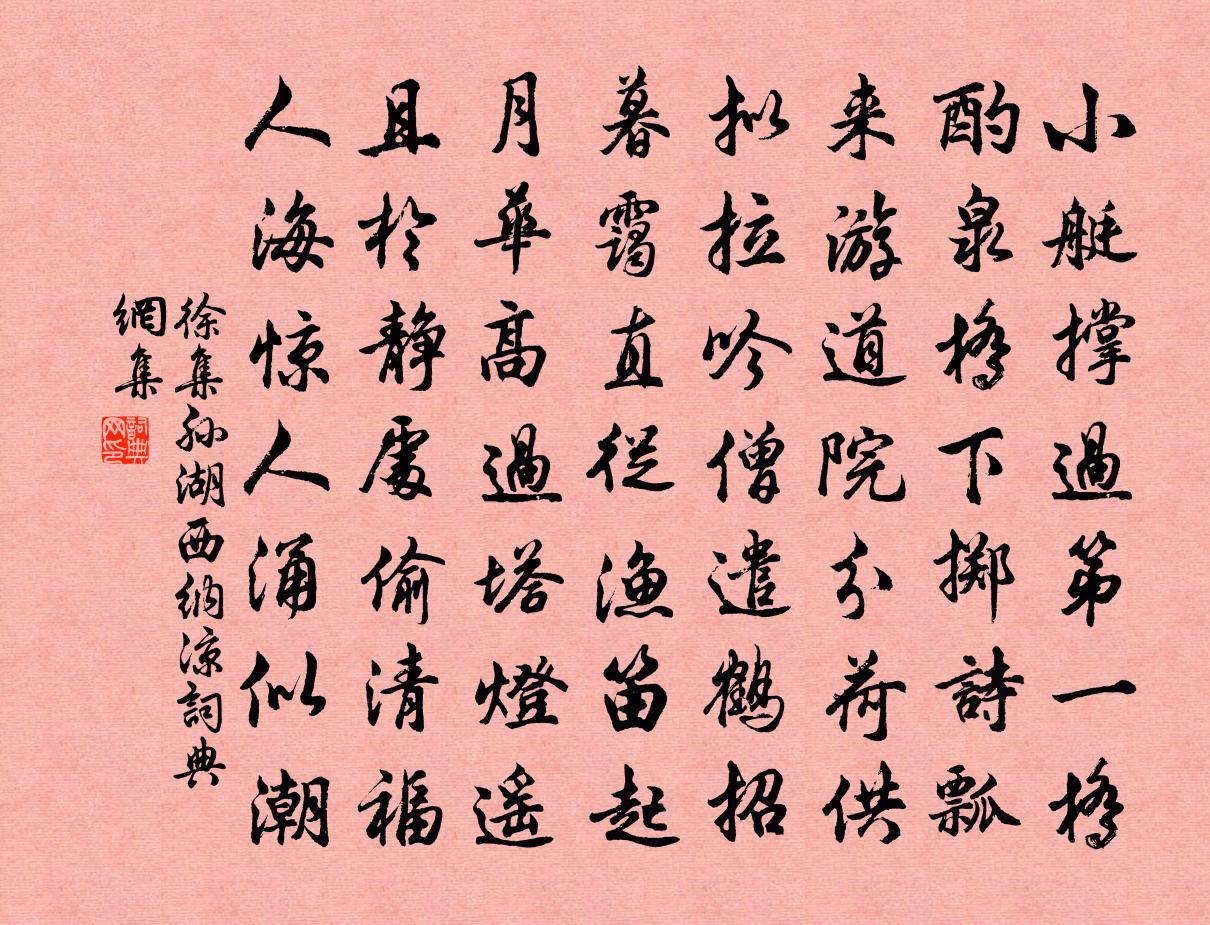 小艇撐過第一橋
酌泉橋下擲詩瓢
来游道院分荷供
拟拉吟僧遣鶴招
暮靄直從漁笛起
月華高過塔燈遥
且於靜處偷清福
人海惊人涌似潮
徐集孙湖西纳凉詞典
網集
詞典网印